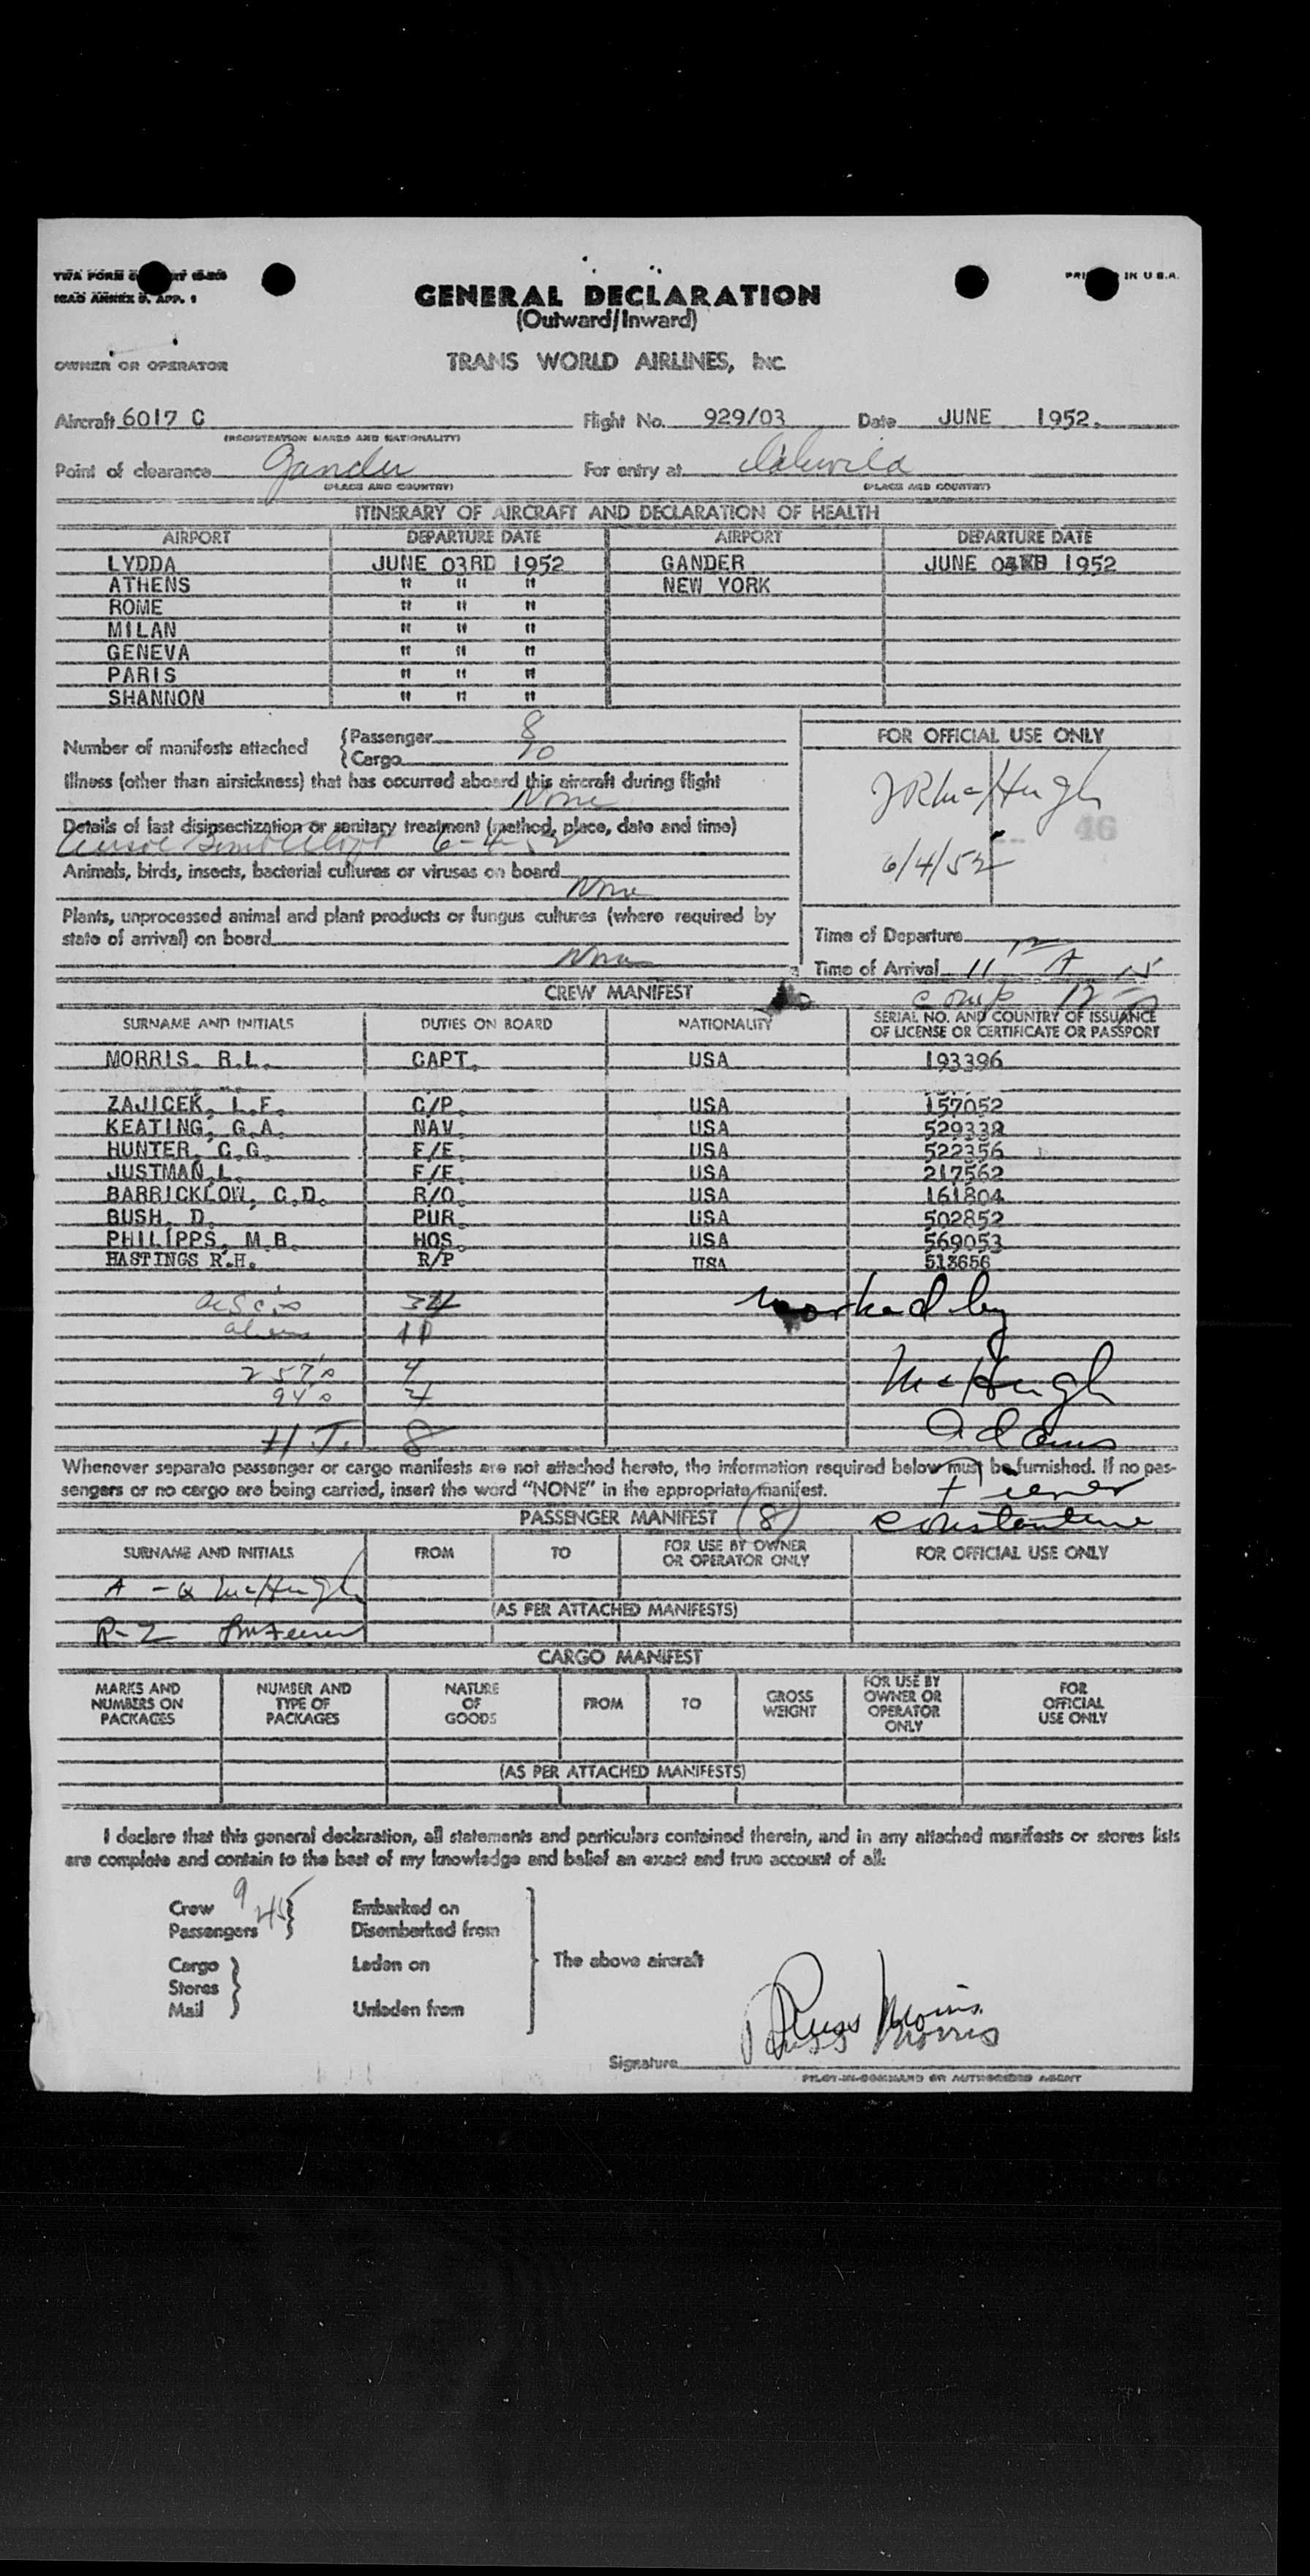 ICAO ANNEX 9, APP. 1
IN U.S.A.
GENERAL DECLARATION
(Outward/Inward)
OWNER OR OPERATOR TRANS WORLD AIRLINES, Inc
Aircraft 6017 C Flight No. 929/03 Date JUNE 1952.
(REGISTRATION MARKS AND NATIONALITY)
Point of clearance Gander For entry at Idlewild
(PLACE AND COUNTRY) (PLACE AND COUNTRY)
ITINERARY OF AIRCRAFT AND DECLARATION OF HEALTH
AIRPORT DEPARTURE DATE AIRPORT DEPARTURE DATE
LYDDA JUNE 03RD 1952 GANDER JUNE 1952
ATHENS " " " NEW YORK
ROME " " "
MILAN " " "
GENEVA " " "
PARIS " " "
SHANNON " " "
Number of manifests attached
Passenger 8
Cargo 10
Illness (other than airsickness) that has occurred aboard this aircraft during flight
None
Details of last disinsectization or sanitary treatment (method, place, date and time)
6-4-52
Animals, birds, insects, bacterial cultures or viruses on board
None
Plants, unprocessed animal and plant products or fungus cultures (where required by
state of arrival) on board
None
FOR OFFICIAL USE ONLY
JR McHugh
46
6/4/52
Time of Departure
Time of Arrival 11 12 A
CREW MANIFEST
SURNAME AND INITIALS DUTIES ON BOARD NATIONALITY SERIAL NO. AND COUNTRY OF ISSUANCE
OF LICENSE OR CERTIFICATE OR PASSPORT
MORRIS. R.L. CAPT. USA 193396
ZAJICEK, L.F. C/P. USA 157052
KEATING, G.A. NAV. USA 529338
HUNTER, C.G. F/E. USA 522356
JUSTMAN,L. F/E. USA 217562
BARRICKLOW, C.D. R/O. USA 161804
BUSH, D. PUR. USA 502852
PHILIPPS, M.B. HOS. USA 569053
HASTINGS R.H. R/P USA 513656
34 worked by
aliens 11
257's 4 McHugh
94's
H.T. 8 Adams
Whenever separate passenger or cargo manifests are not attached hereto, the information required below must be furnished. If no pas-
sengers or no cargo are being carried, insert the word "NONE" in the appropriate manifest.
PASSENGER MANIFEST (8) Constantine
SURNAME AND INITIALS FROM TO FOR USE BY OWNER
OR OPERATOR ONLY FOR OFFICIAL USE ONLY
A - Q McHugh
(AS PER ATTACHED MANIFESTS)
R-Z
CARGO MANIFEST
MARKS AND
NUMBERS ON
PACKAGES NUMBER AND
TYPE OF
PACKAGES NATURE
OF
GOODS FROM TO GROSS
WEIGHT FOR USE BY
OWNER OR
OPERATOR
ONLY FOR
OFFICIAL
USE ONLY
(AS PER ATTACHED MANIFESTS)
I declare that this general declaration, all statements and particulars contained therein, and in any attached manifests or stores lists
are complete and contain to the best of my knowledge and belief an exact and true account of all:
Crew 9 Embarked on
Passengers 45 Disembarked from
Cargo Laden on The above aircraft
Stores
Mail Unladen from
Russ Morris
Russ Morris
Signature
PILOT-IN-COMMAND OR AUTHORIZED AGENT